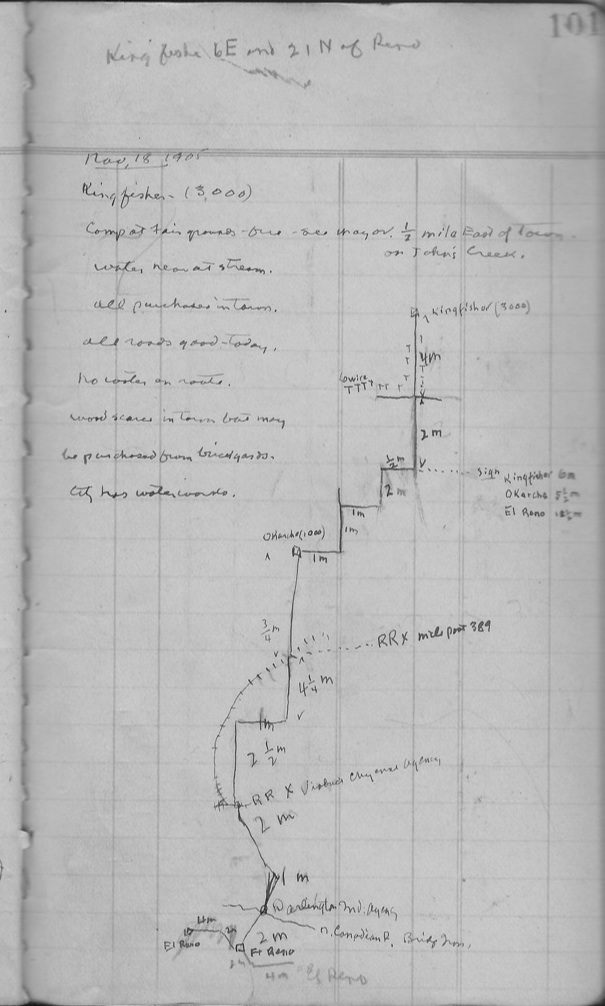 101
Kingfisher 6E and 21N of Reno
Nov, 18 1905
Kingfisher - (3,000)
Camp at Fair grounds - see mayor. 1/2 mile East of town
on John's Creek.
water near at stream.
all purchases in town.
all roads good - today.
No water on route.
wood scarce in town but may
be purchased from brickyards.
City has waterworks.
Kingfisher (3000)
4m
6 wires
T T T T T T T
2 m
1/2 m
sign Kingfisher 6m
OKarche 5 1/2 m
El Reno
2 m
1m
1m
OKarche (1000)
1m
3/4 m
RR X mile post 389
4 1/4 m
1m
2 1/2 m
RR X Cheyenne Agency
2 m
1 m
Darlington Ind. Agency
N. Canadian R. Bridge Iron.
4m
2m
El Reno
2 m
Ft Reno
2m
4m El Reno